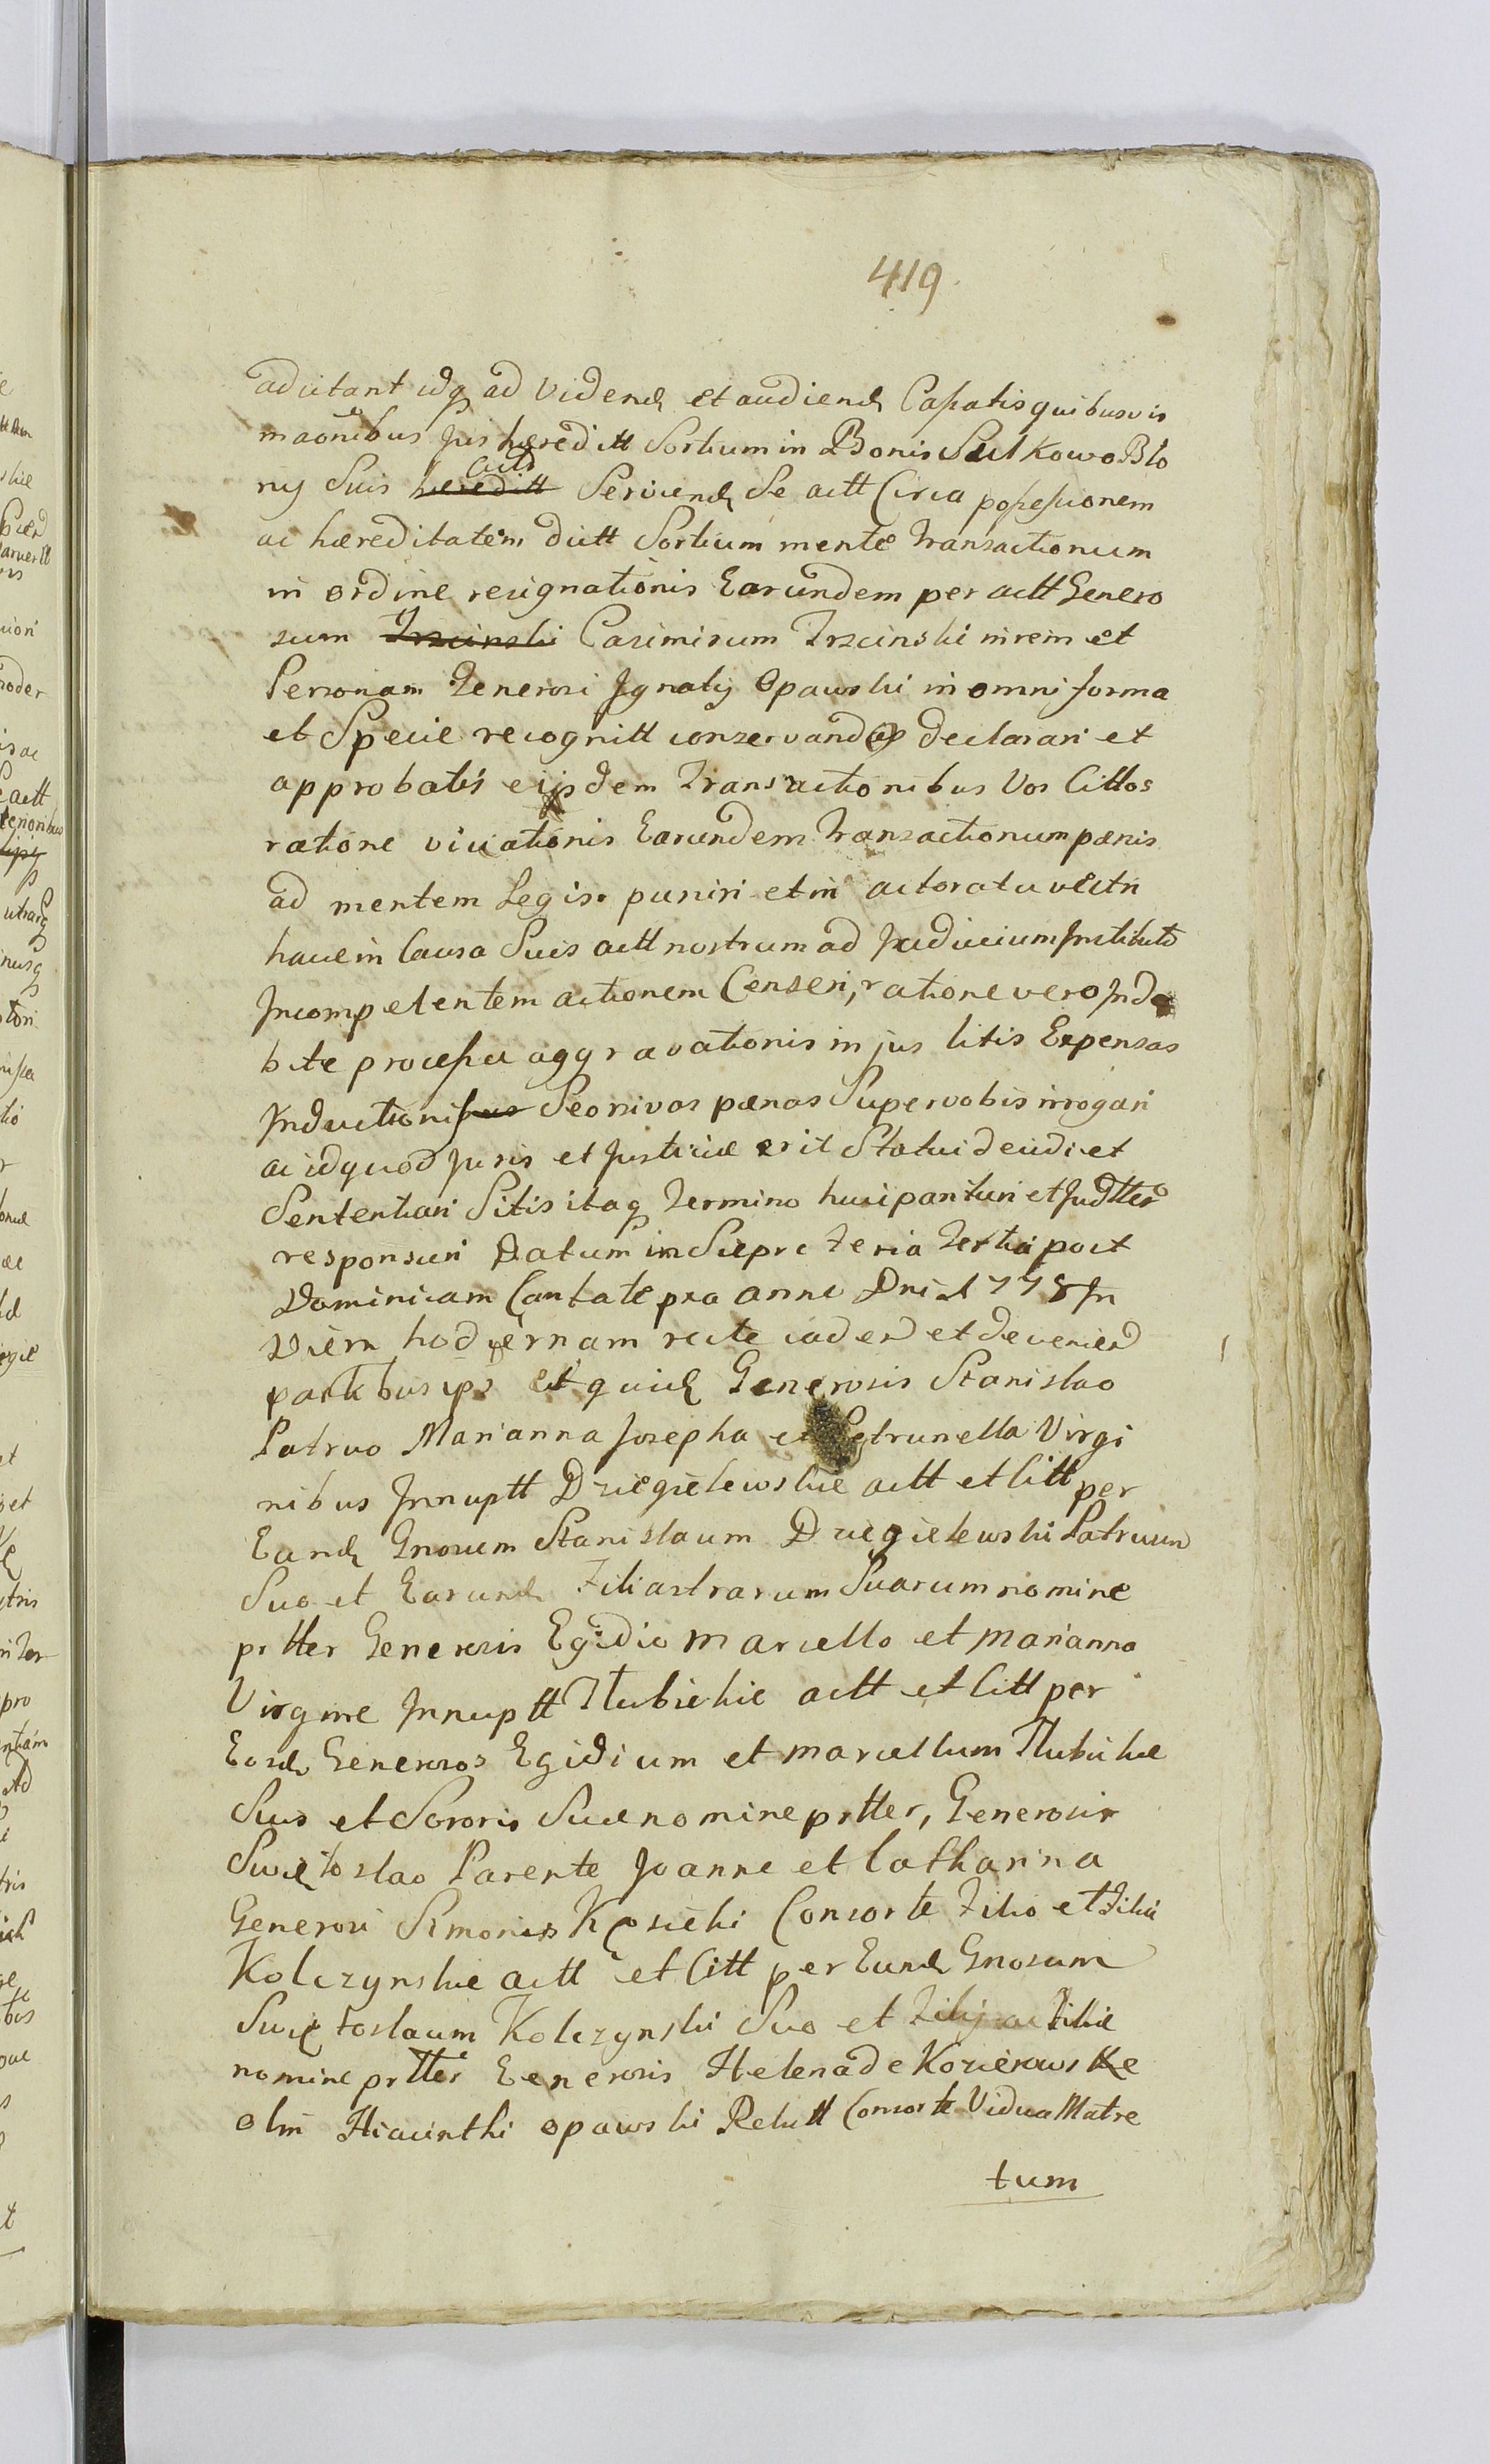 419
adcitant idq ad Videnđ et audienđ Cassatis quibusvis
maonibus Jus hæreditt Sortium in Bonis Sulkowo Bło
ny Suis actt hæreditt Serviend Se actt Circa possessionem
ac hæreditatem dictt Sortium mente Transactionum
in ordine resignationis Earundem per actt Genero
sum Trzcinski Casimirum Trzcinski in rem et
Personam Generosi Ignatij Opawski in omni forma
et Specie recognitt conservandos declarari et
approbatis eijsdem Transactionibus Vos Cittos
ratione viciationis Earundem Transactionum pænis
ad mentem Legis puniri et in actoratu vestri
hac in Causa Suis actt nostrum ad Judicium Instituto
Incompetentem actionem Censeri, ratione vero Inde
bite processu aggravationis in jus litis Expensas
Inductionis Seorsivas pænas Super vobis irrogari
ac idquod Juris et Justiciæ erit Statui decidi et
Sententiari Sitis itaq Termino huic parituri et Judtter
responsuri Datum in Sierpc Feria Tertia post
Dominicam Cantate pro anno Dni 1778 In
Diem hodiernam recte cadend et deveniend
partibus ips et quid Generosis Stanislao
Patruo Marianna Josepha et Petrunella Virgi
nibus Innuptt Dziegielewskie actt et Citt per
Eund Gnosum Stanislaum Dziegielewski Patruum
Suo et Earund Filiastrarum Suarum nomine
prtter Generosis Egidio Marcello et Marianna
Virgine Innuptt Hubickie actt et Citt per
Eosd Generosos Egidium et Marcellum Hubickie
Suo et Sororis Suæ nomine prtter, Generosis
Swiętoslao Parente Joanne et Catharina
Generosi Simonis Kęsicki Consorte Filio et Filia
Kolczynskie actt et Citt per Eund Gnosum
Swiętoslaum Kolczynski Suo et Filij ac Filiæ
nomine prtter Generosis Helena de Kozierowske
olim Hiacinthi Opawski Relictt Consorte Vidua Matre
tum